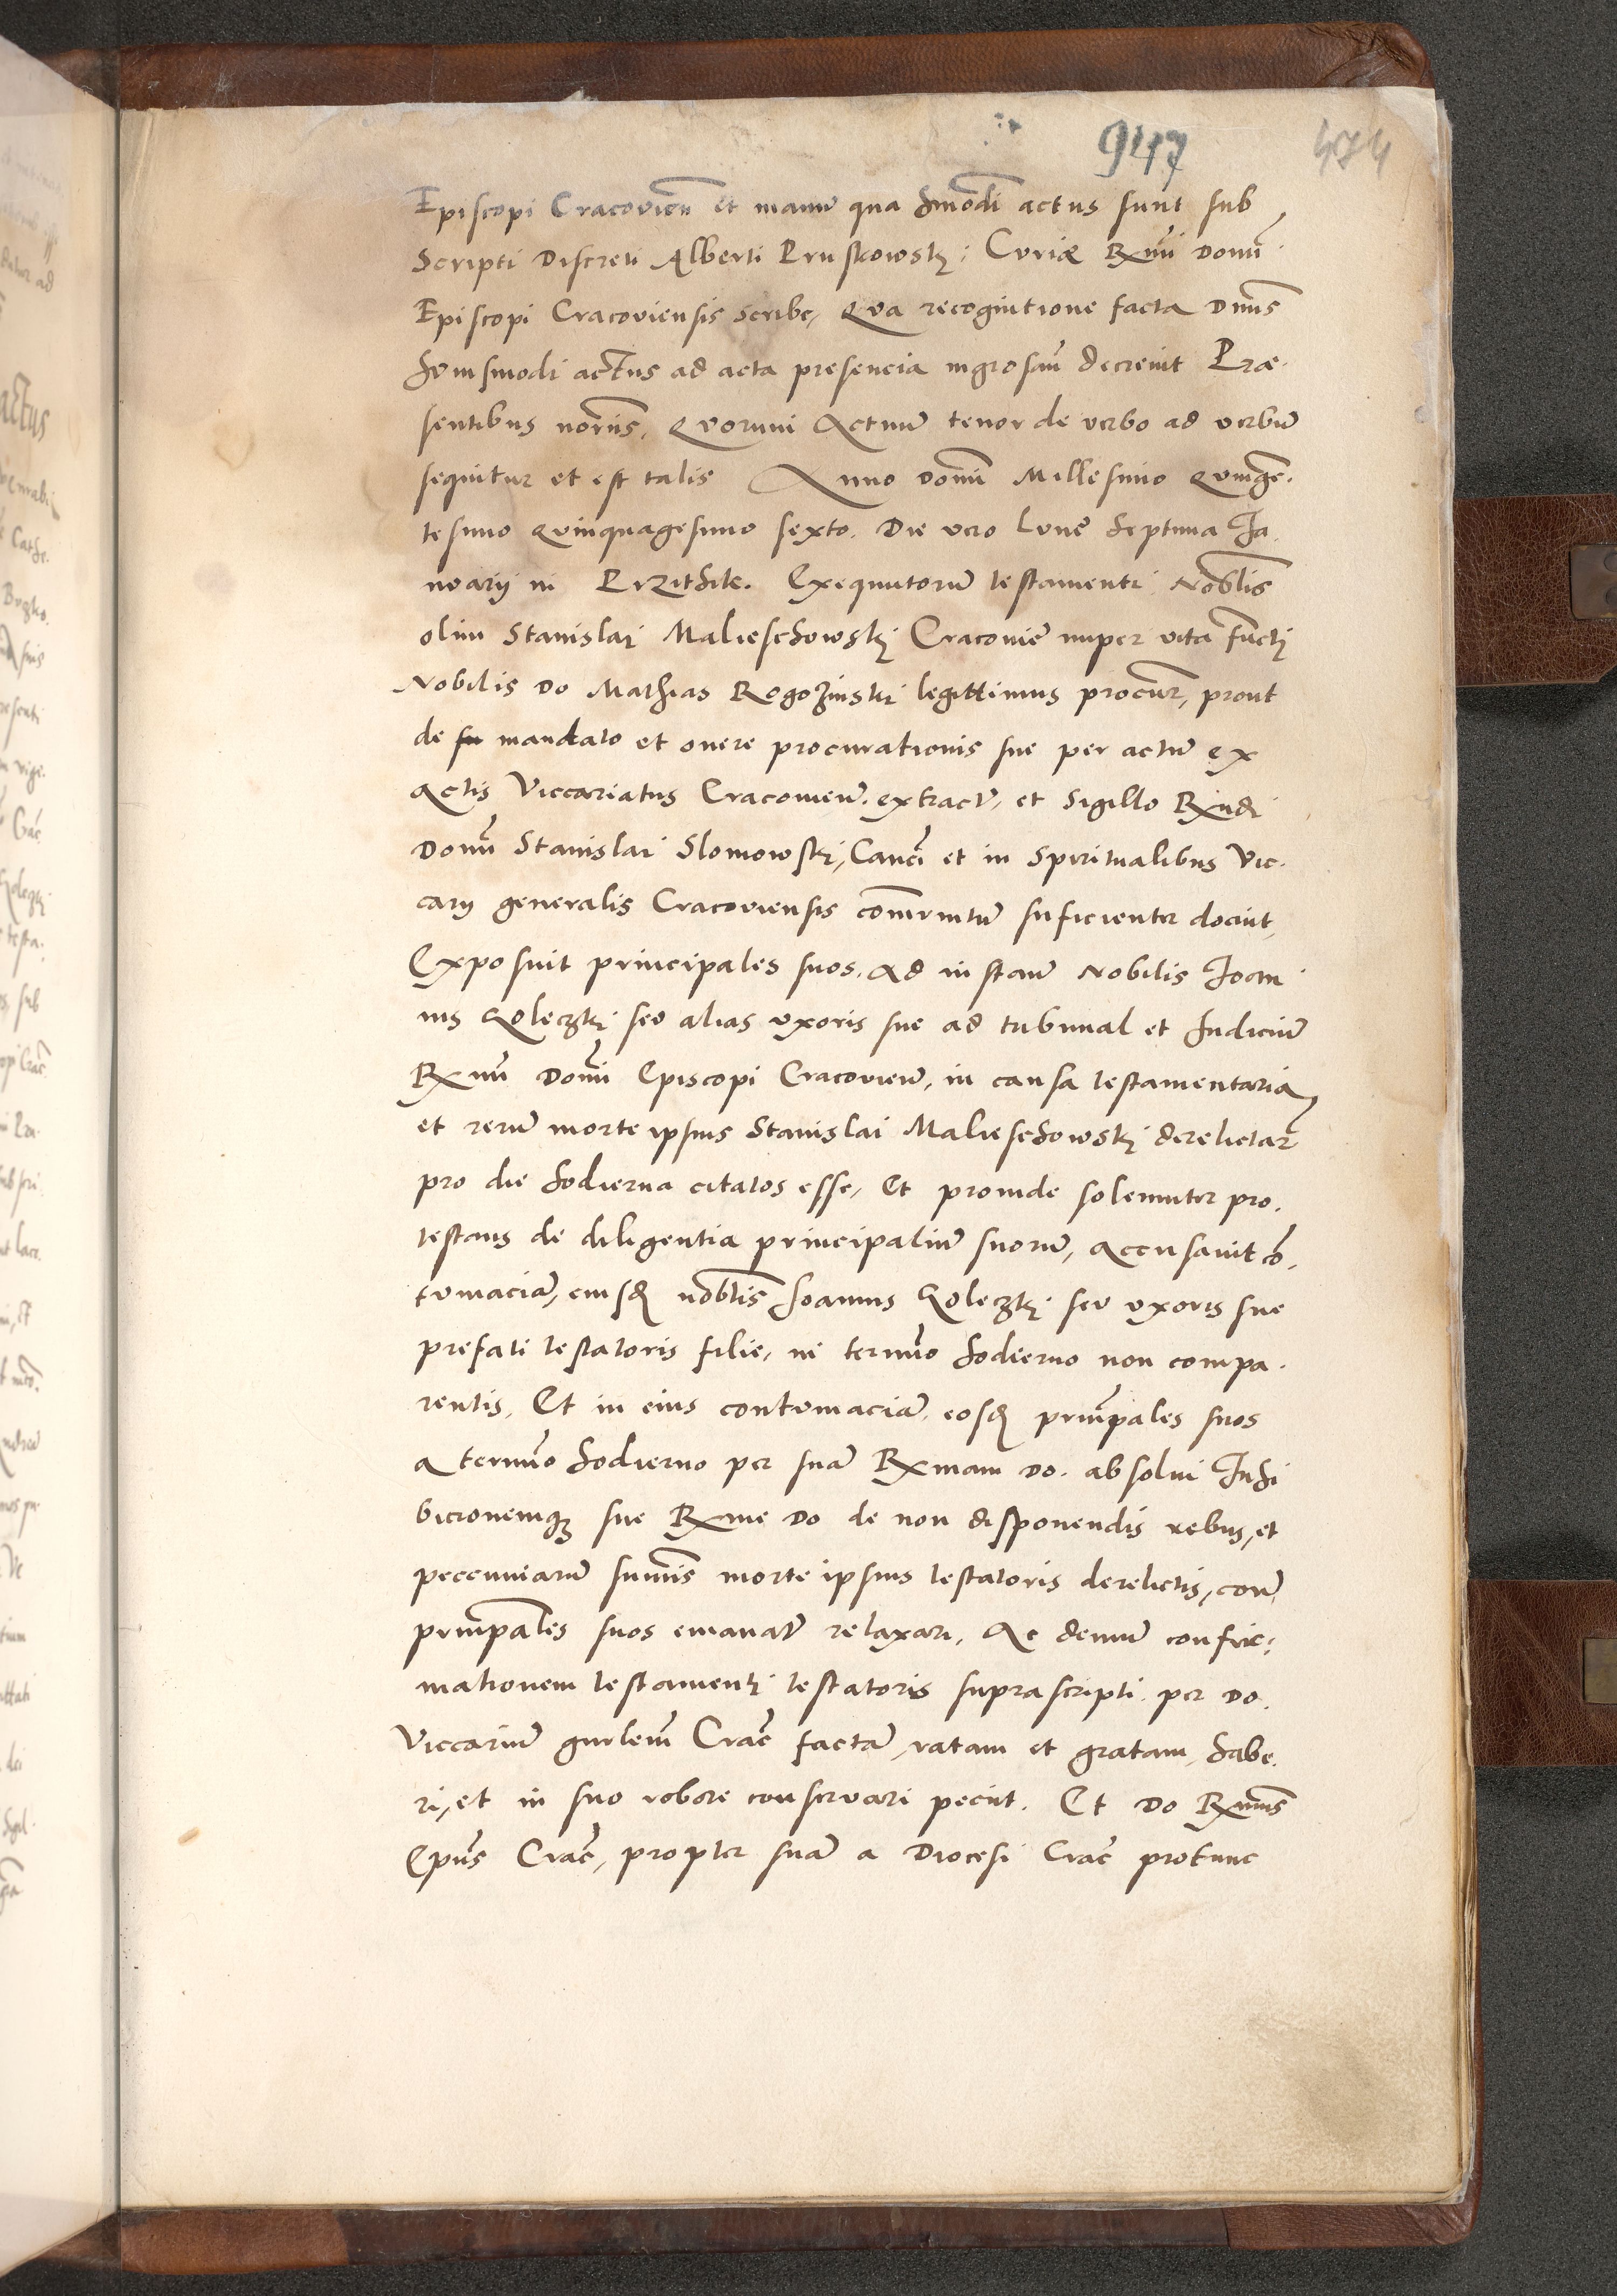 947
474
Episcopi Cracovien̄ et manu qua hm̄odi actus sunt sub
scripti Discreti Alberti Pruskowski Curiæ Rxmi Domī
Episcopi Cracoviensis scribe, Qua recognitione facta Dn̄us
huiusmodi actus ad acta presencia ingrosarī decrevit Præ
sentibus nor̄iis. Quorum Actuū tenor de verbo ad verbū
sequitur et est talis Anno Domī Millesimo Quingē
tesimo Quinquagesimo sexto. Die vero Lunæ septima Ja
nuarij in Przithik. Exequutorū testamenti Nob̄lis
olim Stanislai Maliechowski Cracovie nuper vita fūcti
Nobilis Do Mathias Rogozinski legittimus procur̄, prout
de mandato et onere procurationis sue per actū ex
Actis Viccariatus Cracovien̄. extract̄, et sigillo Rxndi
Domī Stanislai Slomowski, Cancī et in Spiritualibus Vic
carij generalis Cracoviensis com̄unitū suficienter docuit,
Exposuit principales suos. Ad instan̄ Nobilis Joan
nis Goleczki seu alias uxoris sue ad tribunal et Judiciū
Rxmi Domī Episcopi Cracovien̄, in causa testamentaria
et rerū morte ipsius Stanislai Maliechowski derelictar̄
pro die hodierna citatos esse, Et proinde solenniter pro
testans de diligentia principaliū suorū, Accusavit cō
tumaciā, eiusd nob̄lis Joannis Goleczki seu uxoris sue
prefati testatoris filie, in termīo hodierno non compa
rentis, Et in eius contumaciā. eosd prin̄pales suos
a termīo hodierno per suā Rxmam Do. absolvi Inhi
bicionemq sue Rxme Do de non disponendis rebus, et
peccuniarū sum̄is morte ipsius testatoris derelictis, con̄
prin̄pales suos emanat̄ relaxari, Ac demū confir
mationem testamenti testatoris suprascripti per Do.
Viccariū gn̄rlem Crac̄ factā, ratam et gratam, habe
ri, et in suo robore conservari peciit. Et Do Rxmus
Ep̄us Crac̄, propter suā a Diocesi Crac̄ protunc